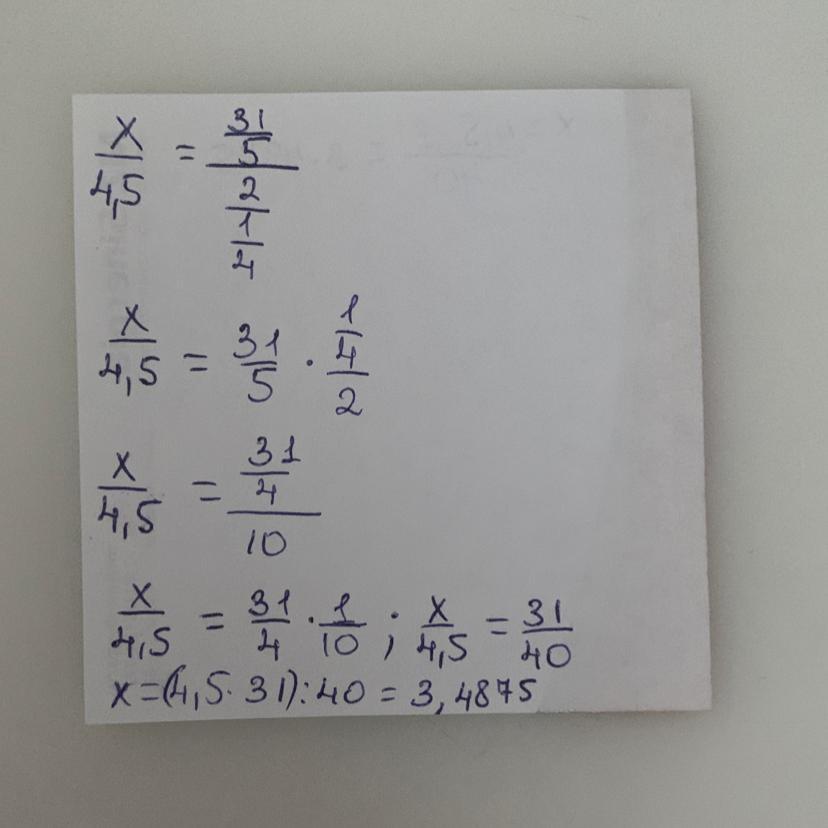 x/4,5 = (31/5)/(2/(1/4))
x/4,5 = 31/5 · (1/4)/2
x/4,5 = (31/4)/10
x/4,5 = 31/4 · 1/10 ; x/4,5 = 31/40
x=(4,5·31):40 = 3,4875